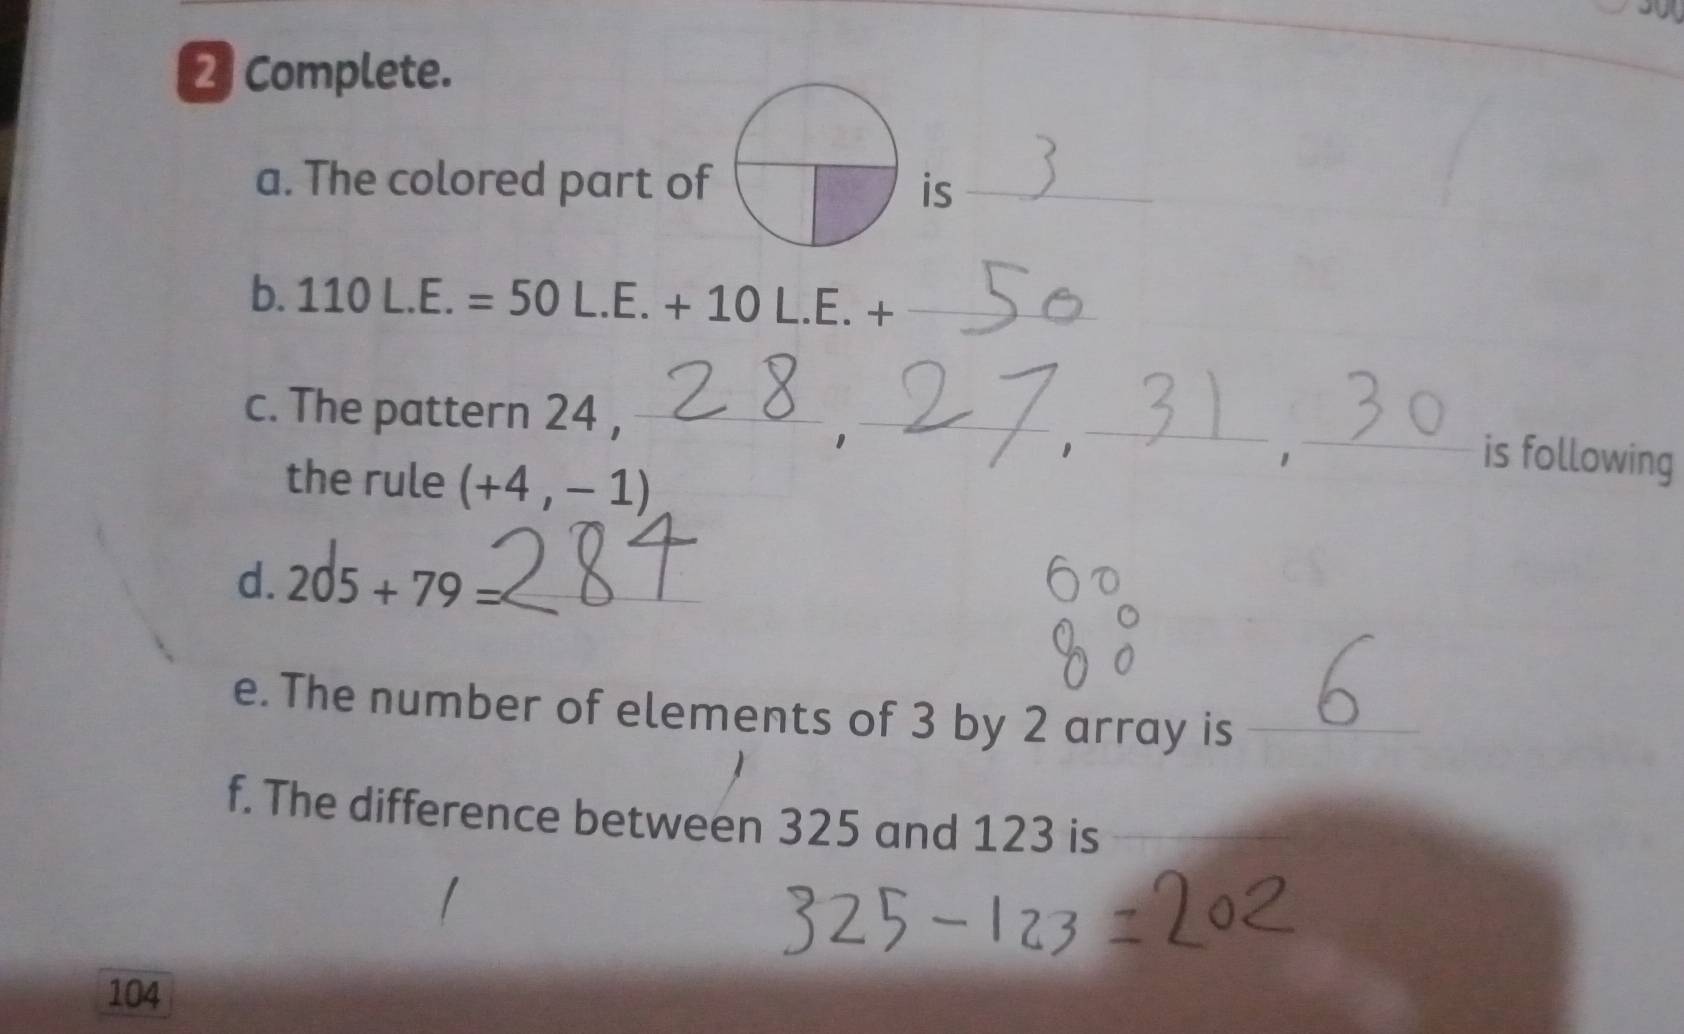 2 Complete.
a. The colored part of is 3
b. 110 L.E. = 50 L.E. + 10 L.E. + 50
c. The pattern 24 , 28 , 27 , 31 , 30 is following
the rule (+4 , – 1)
d. 205 + 79 = 284
60
80
e. The number of elements of 3 by 2 array is 6
f. The difference between 325 and 123 is
325 - 123 = 202
104